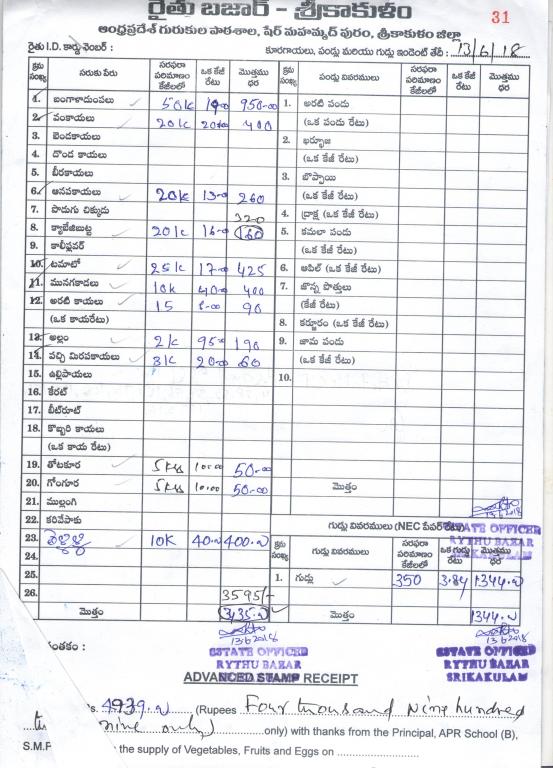 రైతు బజార్ - శ్రీకాకుళం
31
ఆంధ్రప్రదేశ్ గురుకుల పాఠశాల, షేర్ మహమ్మద్ పురం, శ్రీకాకుళం జిల్లా
రైతు I.D. కార్డు నెంబర్ :
కూరగాయలు, పండ్లు మరియు గుడ్లు ఇండెంట్ తేది : 13/6/18
క్రమ సంఖ్య సరుకు పేరు సరఫరా పరిమాణం కేజీలలో ఒక కేజీ రేటు మొత్తము ధర
1. బంగాళాదుంపలు 50k 19-0 950-00
2. వంకాయలు 20k 20-00 400
3. బెండకాయలు
4. దొండ కాయలు
5. బీరకాయలు
6. ఆనపకాయలు 20k 13-0 260
7. పొడుగు చిక్కుడు
320
8. క్యాబేజిబుట్ట 20k 16-0 160
9. కాలీఫ్లవర్
10. టమాటో 25k 17-0 425
11. మునగకాడలు 10k 40-0 400
12. అరటి కాయలు 15 90
(ఒక కాయరేటు)
13. అల్లం 2k 95-0 190
14. పచ్చి మిరపకాయలు 3k 20-00 60
15. ఉల్లిపాయలు
16. కేరట్
17. బీట్‌రూట్
18. కొబ్బరి కాయలు
(ఒక కాయ రేటు)
19. తోటకూర 5 10.00 50-00
20. గోంగూర 5 10.00 50-00
21. ముల్లంగి
22. కరివేపాకు
23. 10K 40.0 400.00
24.
25.
26. 3595/-
మొత్తం
క్రమ సంఖ్య పండ్లు వివరములు సరఫరా పరిమాణం కేజీలలో ఒక కేజీ రేటు మొత్తము ధర
1. అరటి పండు
(ఒక పండు రేటు)
2. ఖర్భూజ
(ఒక కేజీ రేటు)
3. బొప్పాయి
(ఒక కేజీ రేటు)
4. ద్రాక్ష (ఒక కేజీ రేటు)
5. కమలా పండు
(ఒక కేజీ రేటు)
6. ఆపిల్ (ఒక కేజీ రేటు)
7. జొన్న పొత్తులు
(కేజీ రేటు)
8. కర్జూరం (ఒక కేజీ రేటు)
9. జామ పండు
(ఒక కేజీ రేటు)
10.
మొత్తం
13.6.2018
గుడ్లు వివరములు (NEC పేపర్ రేటు)
ESTATE OFFICER
RYTHU BAZAR
SRIKAKULAM
క్రమ సంఖ్య గుడ్లు వివరములు సరఫరా పరిమాణం కేజీలలో ఒక గుడ్డు రేటు మొత్తము ధర
1. గుడ్లు 350 3.84 1344.00
మొత్తం 1344.00
13.6.2018
ESTATE OFFICER
RYTHU BAZAR
13.6.2018
ESTATE OFFICER
RYTHU BAZAR
SRIKAKULAM
ంతకం :
ADVANCED STAMP RECEIPT
s. 4939.00 (Rupees Four thousand Nine hundred
nine only) only) with thanks from the Principal, APR School (B),
S.M.P the supply of Vegetables, Fruits and Eggs on